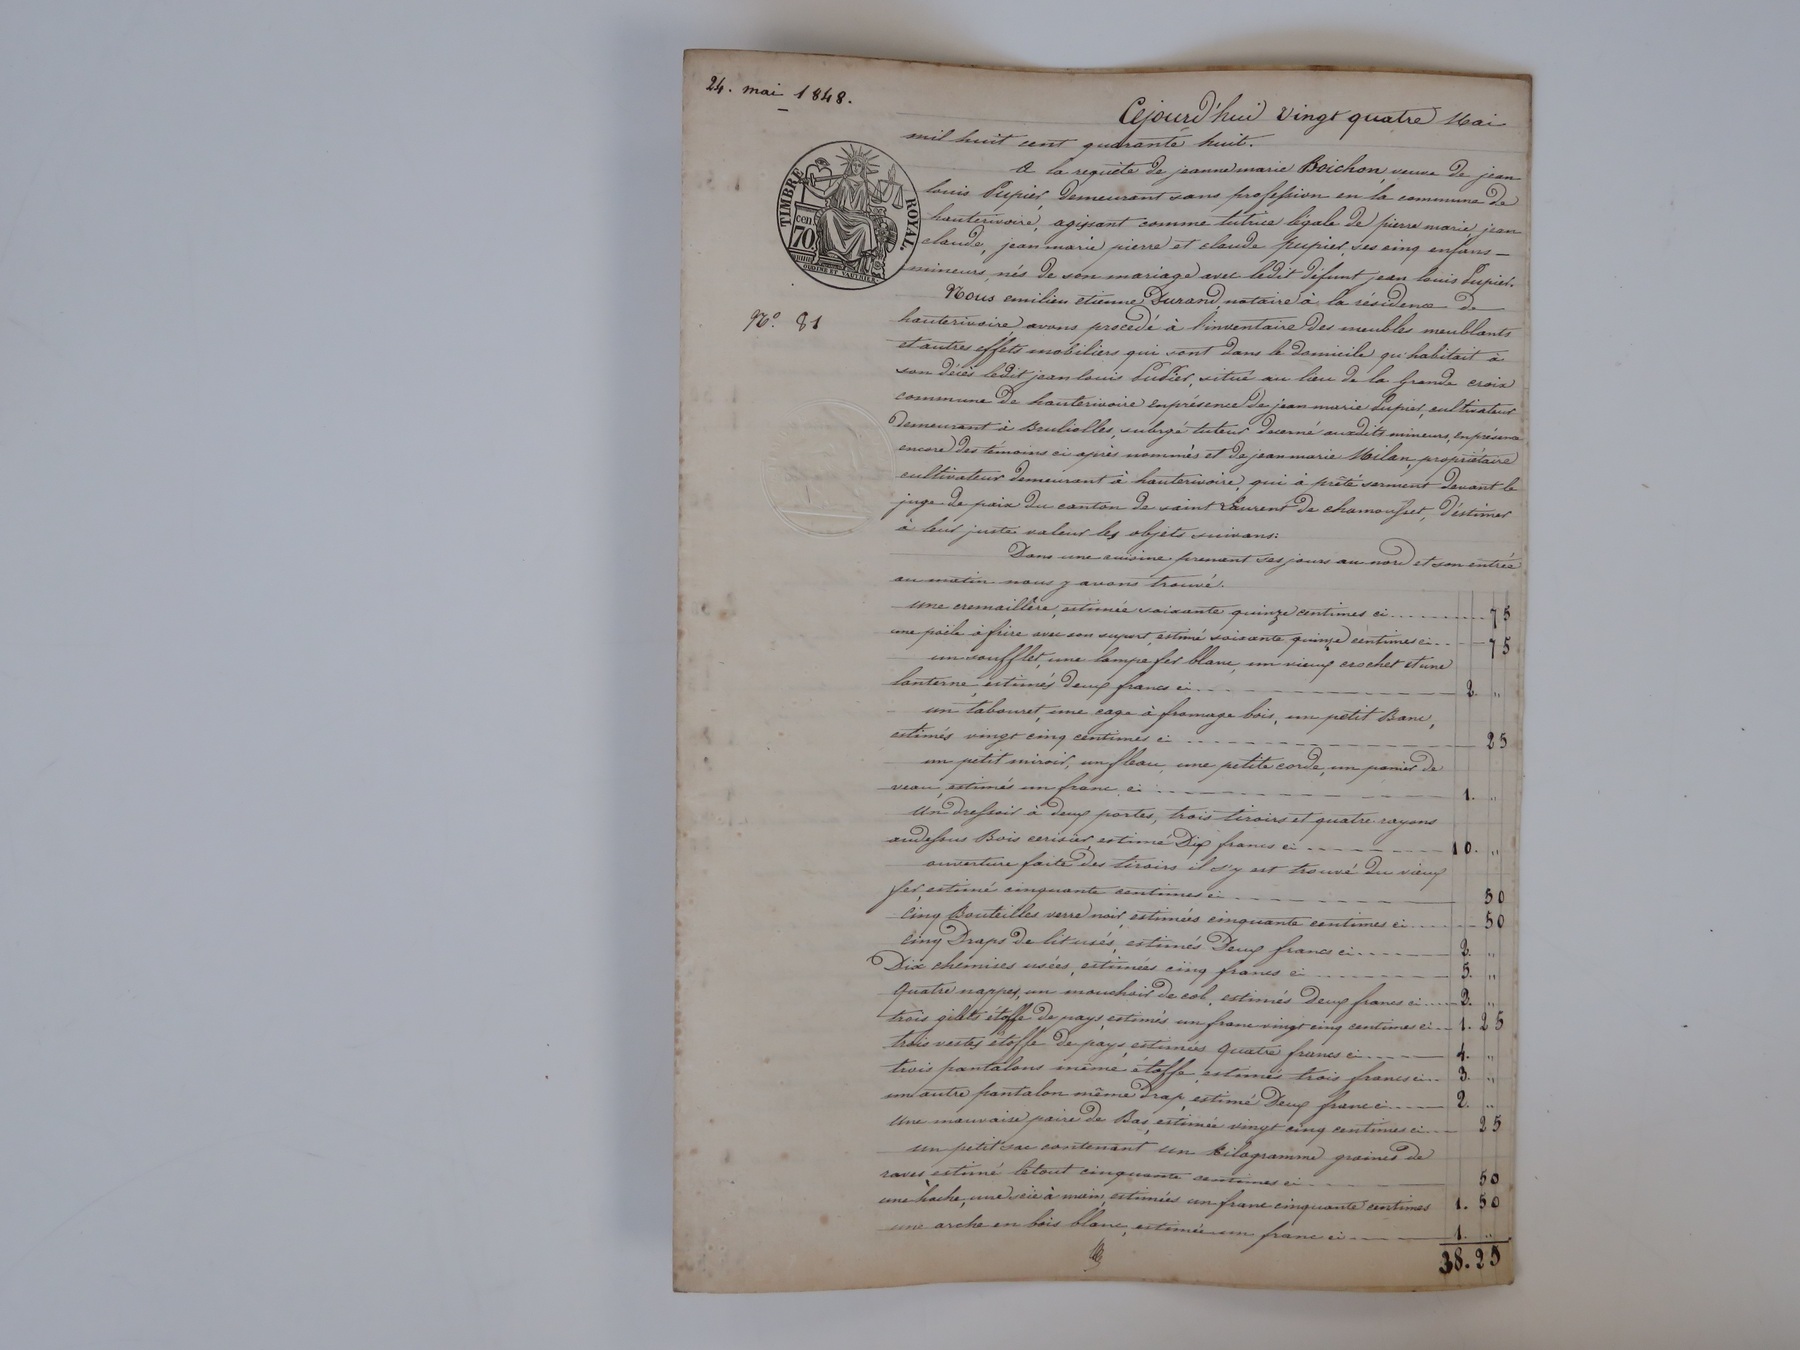 24. mai 1848.
Cejourd'hui vingt quatre Mai
mil huit cent quarante huit.
A la requête de jeanne marie Boichon, veuve de jean
louis Pupier, demeurant sans profession en la commune de
hauterivoire, agissant comme tutrice légale de pierre marie, jean
claude, jean marie pierre et claude Pupier, ses cinq enfans
mineurs, nés de son mariage avec ledit défunt jean louis Pupier.
TIMBRE ROYAL.
cen
70
Nous emilien etienne Durand, notaire à la résidence de
N° 81
hauterivoire, avons procédé à l'inventaire des meubles meublants
et autres effets mobiliers qui sont dans le domicile qu'habitait à
son décès ledit jean louis Pupier, situé au lieu de la Grande croix
commune de hauterivoire en présence de jean marie Pupier, cultivateur
demeurant à Brullioles, subrogé tuteur decerné auxdits mineurs, en présence
encore des témoins ci après nommés et de jean marie Milan, propriétaire
cultivateur demeurant à hauterivoire, qui à prêté serment devant le
juge de paix du canton de saint Laurent de chamousset, d'éstimer
à leur juste valeur les objets suivans:
Dans une cuisine prenant ses jours au nord et son entrée
au matin nous y avons trouvé.
une cremaillère, estimée soixante quinze centimes ci 75
une poële à frire avec son suport, estimé soixante quinze centimes ci 75
un soufflet, une lampe fer blanc, un vieux crochet et une
lanterne, estimés deux francs ci 2. "
un tabouret, une cage à fromage bois, un petit Banc,
estimés vingt cinq centimes ci 25
un petit miroir, un fleau, une petite corde, un panier de
veau, estimés un franc ci 1. "
Un dressoir à deux portes, trois tiroirs et quatre rayons
audessus Bois cerisier, estimé Dix francs ci 10. "
ouverture faite des tiroirs il s'y est trouvé du vieux
fer estimé cinquante centimes ci 50
Cinq Bouteilles verre noir, estimées cinquante centimes ci 50
Cinq Draps de lit usés, estimés Deux francs ci 2. "
Dix chemises usées, estimées cinq francs ci 5. "
Quatre nappes, un mouchoir de col, estimés Deux francs ci 2. "
trois gilets étoffe de pays, estimés un franc vingt cinq centimes ci 1. 25
trois vestes étoffe de pays, estimées Quatre francs ci 4. "
trois pantalons même étoffe, estimés trois francs ci 3. "
un autre pantalon même Drap, estimé Deux franc ci 2. "
Une mauvaise paire de Bas, estimée vingt cinq centimes ci 25
un petit sac contenant un Kilogramme graines de
raves estimé le tout cinquante centimes ci 50
une hache, une scie à main, estimées un franc cinquante centimes 1. 50
une arche en bois blanc, estimée un franc ci 1. "
38. 25